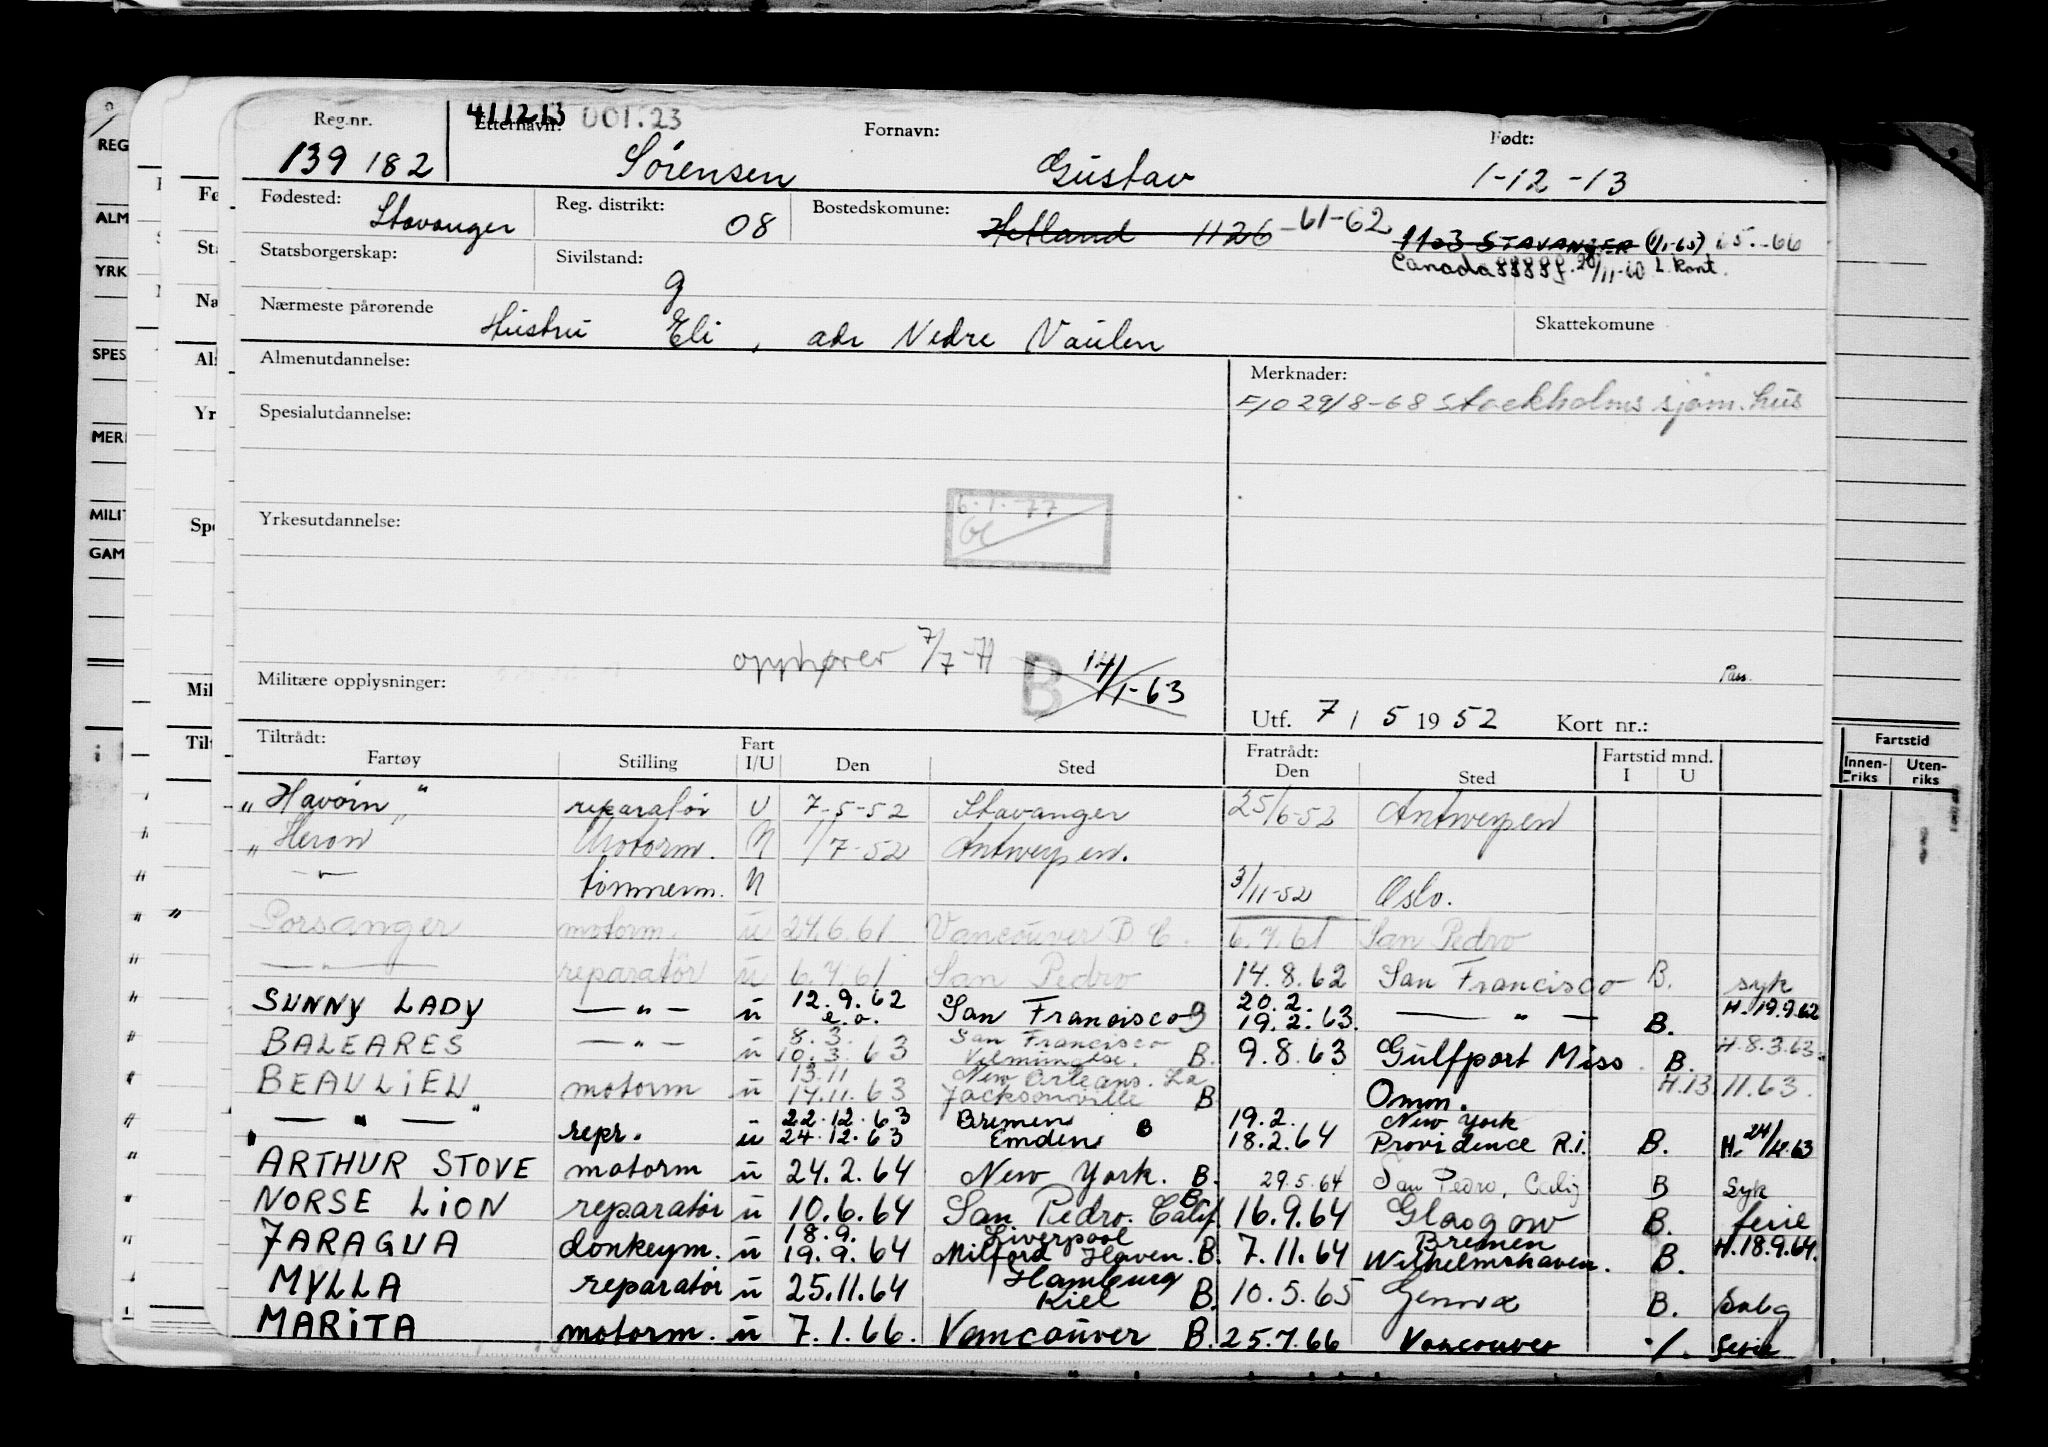 Reg.nr. 411213 Etternavn: 001.23 Fornavn: Født:
139 182 Sörensen Gustav 1-12-13
Fødested: Stavanger Reg. distrikt: 08 Bostedskomune: Hetland 1126 -61-62 1103 STAVANGER (1/1-65) 65.-66
Statsborgerskap: Sivilstand: g Canada
Nærmeste pårørende Hustru Eli, adr Nedre Vaulen Skattekomune
Almenutdannelse: Merknader:
F/O 29/8-68 Stockholms sjøm. hus
Spesialutdannelse:
6.1.-77
Yrkesutdannelse:
opphører 7/7-71 B 14/1-63
Militære opplysninger: Pass.
Utf. 7 / 5 1952 Kort nr.:
Tiltrådt: Fratrådt:
Fartøy Stilling Fart I/U Den Sted Den Sted Fartstid mnd. I U
"Havörn" reparatör U 7-5-52 Stavanger 25/6-52 Antwerpen
"Heron Motorm. N 1/7-52 Antwerpen.
-"- tömmerm. N 3/11-52 Oslo.
Porsanger motorm. u 24.6.61 Vancouver B C. 6.7.61 San Pedro
-"- reparatör u 6.7.61 San Pedro 14.8.62 San Francisco B. syk
SUNNY LADY -"- u 12.9.62 e.o. San Francisco B 20.2. 19.2.63. -"- B. H. 19.9.62
BALEARES -"- u 8.3. 10.3.63 San Francisco B. 9.8.63 Gulfport Miss. B. H.8.3.63.
BEAULIEU motorm u 13.11 14.11.63 New Orleans. La Jacksonville B Omm. H.13.11.63.
-"- repr. u 22.12.63 24.12.63 Bremen Emden B 19.2. 18.2.64 New York Providence R.i. B.
ARTHUR STOVE motorm u 24.2.64 New York. B. 29.5.64 San Pedro, Calif B syk
NORSE LION reparatör u 10.6.64 San Pedro. Calif. B. 16.9.64 Glasgow B. ferie
JARAGUA donkeym. u 18.9. 19.9.64 Liverpool Milford Haven. B. 7.11.64 Bremen Wilhelmshaven. B. H.18.9.64.
MYLLA reparatör u 25.11.64 Hamburg Kiel B. 10.5.65 Genova B. Salg
MARITA motorm. u 7.1.66. Vancouver B. 25.7.66 Vancouver ./. ferie
REG
ALM
YRK
SPES
MERI
MILIT
GAM
Fø
Sta
Na
Al
Yr
Spe
Mil
Tilt
Fartstid
Innenriks Utenriks